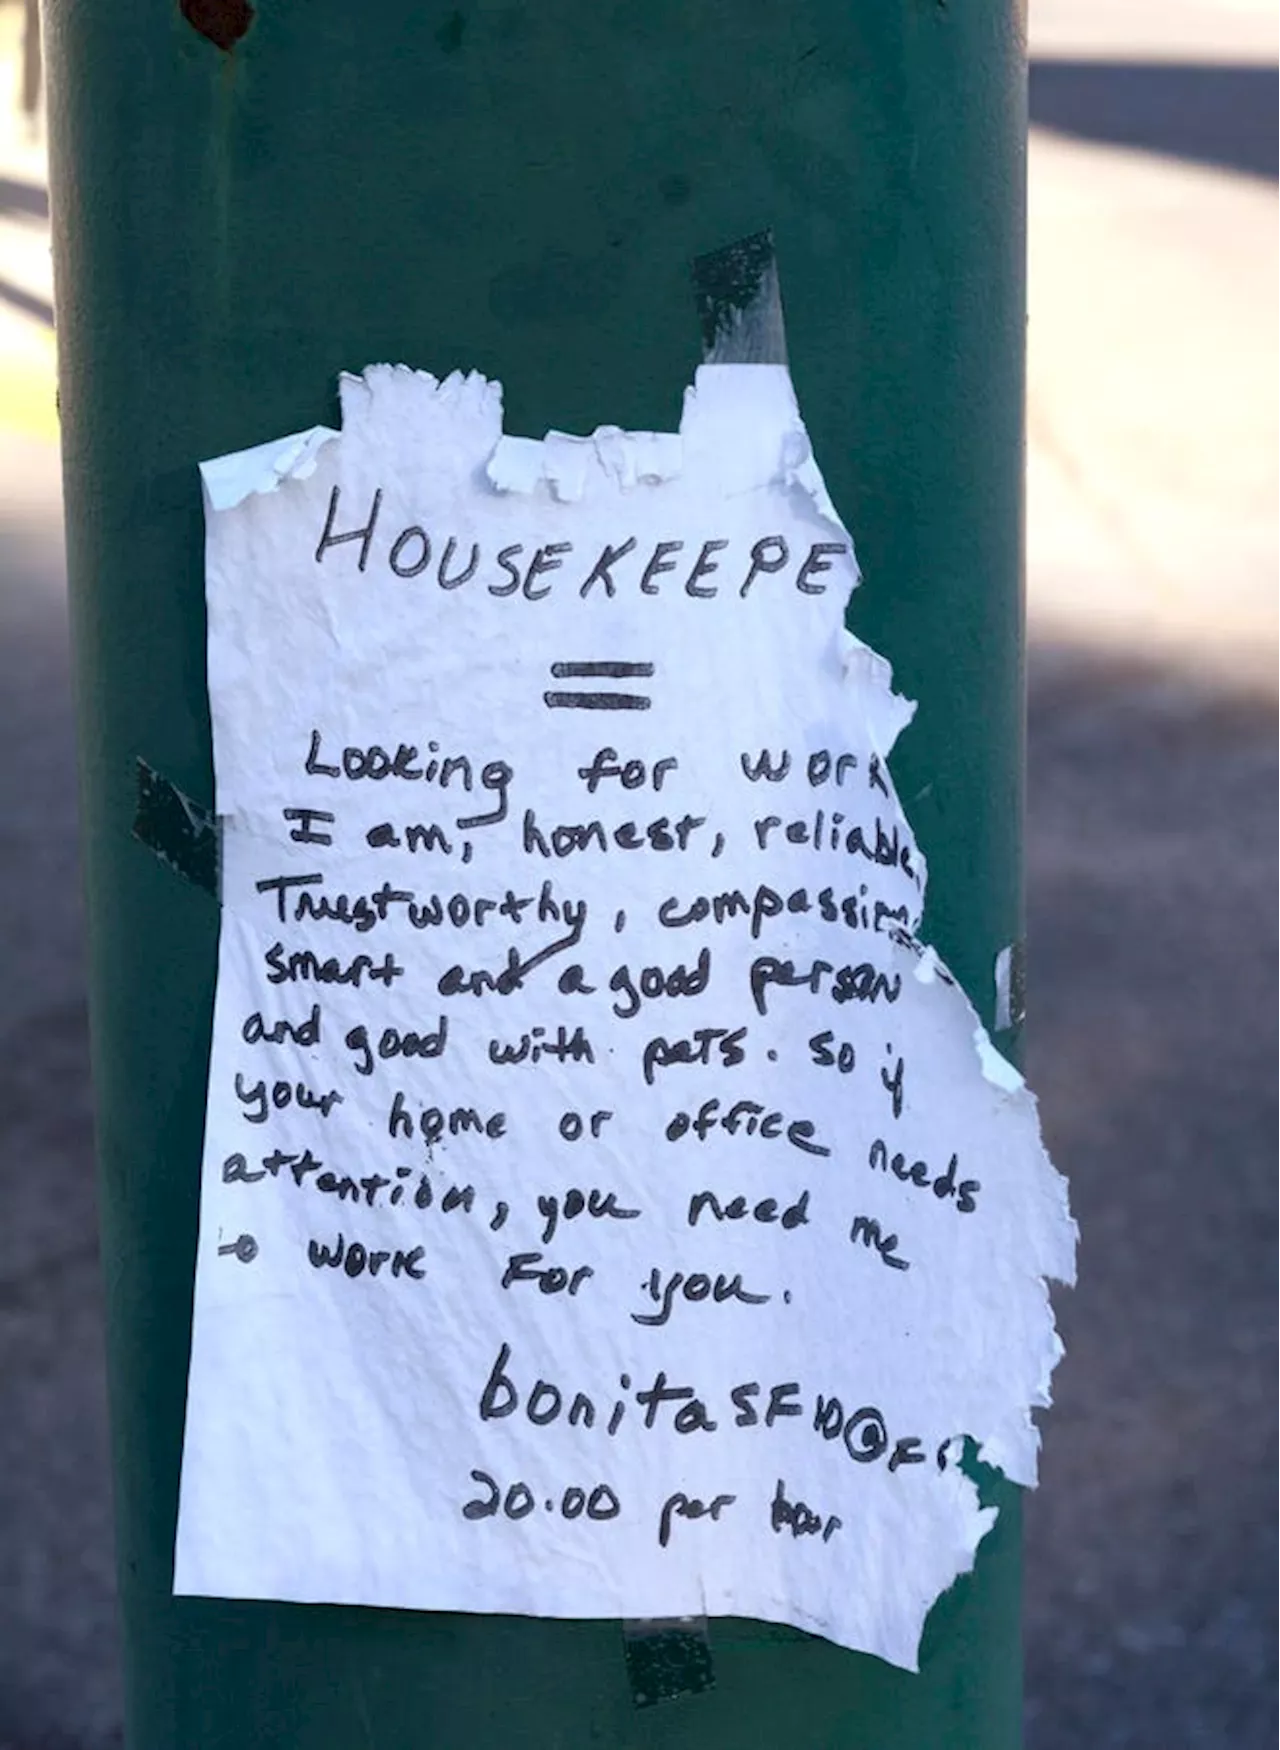 HOUSEKEEPE
=
Looking for work
I am, honest, reliable,
Trustworthy, compassion
smart and a good person
and good with pets. So if
your home or office needs
attention, you need me
to work For you.
bonitaSF10@F
20.00 per hour